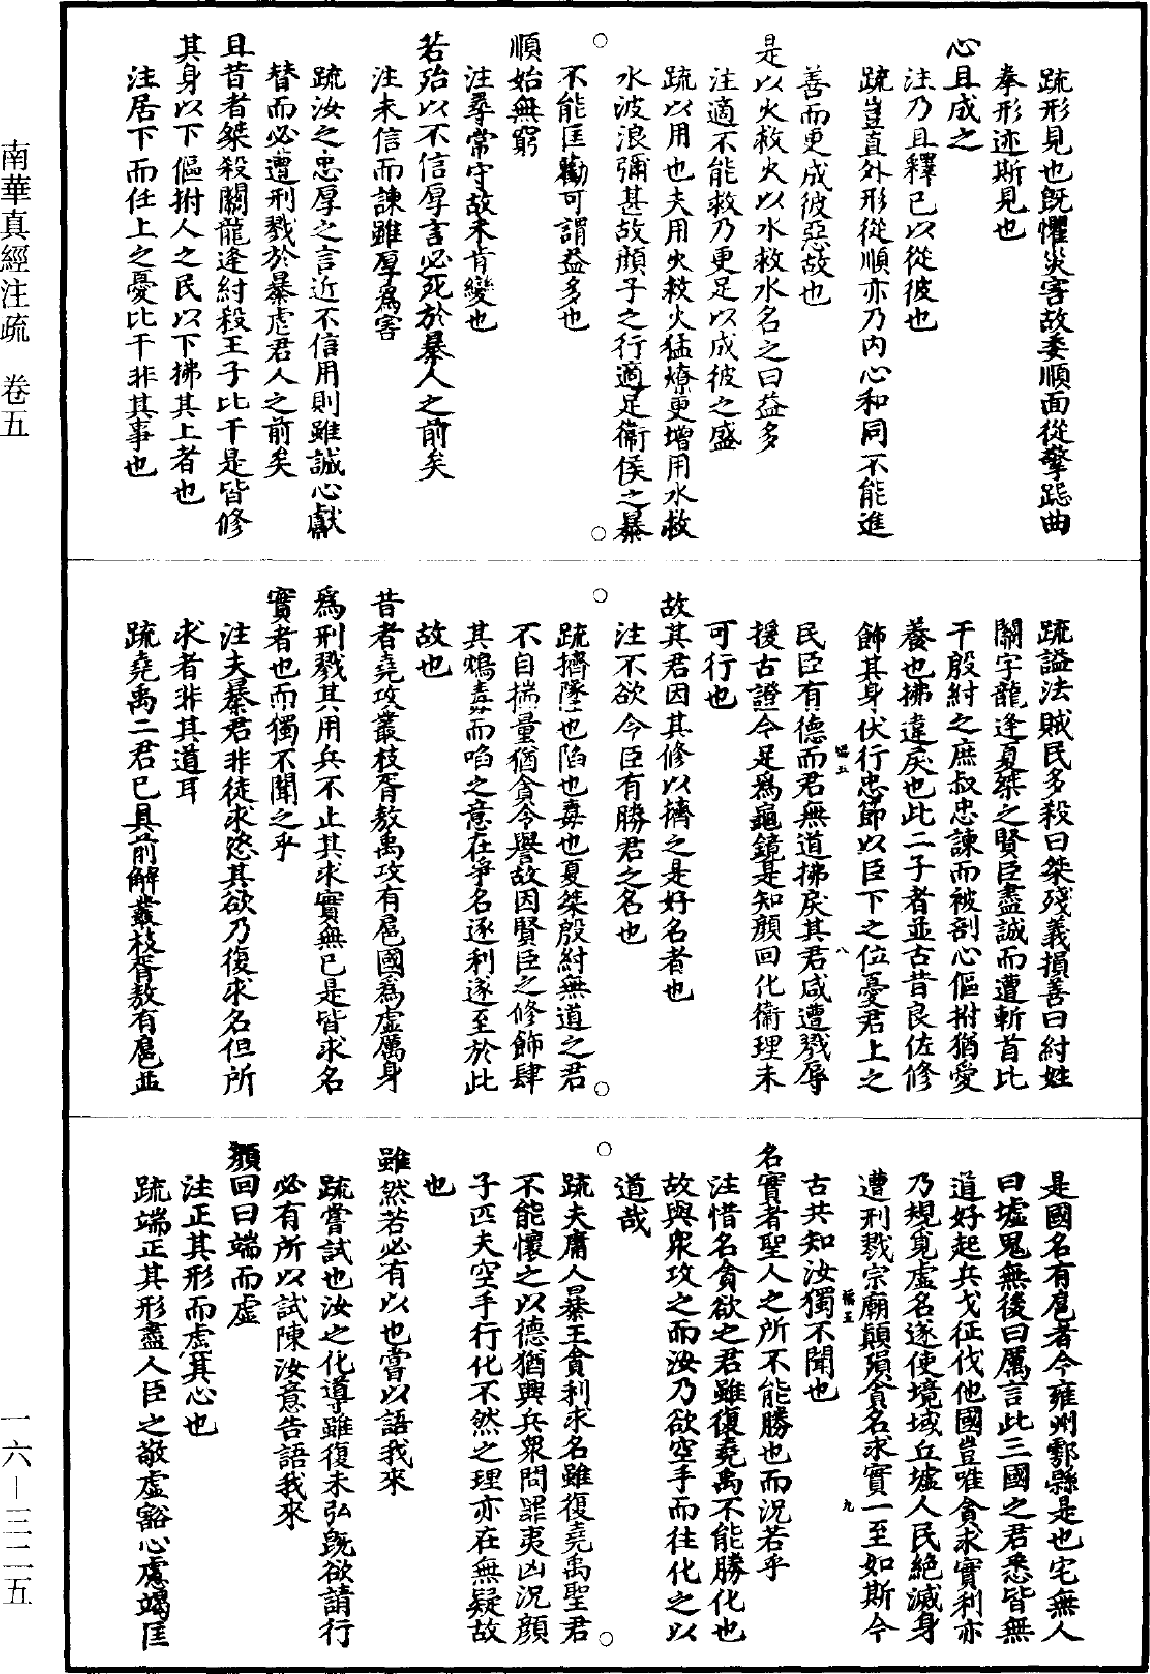 南華真經注疏　卷五
一六—三二五
疏形見也旣懼災害故委順面從擎跽曲
拳形迹斯見也
心且成之
注乃且釋已以從彼也
疏豈直外形從順亦乃內心和同不能進
善而更成彼惡故也
是以火救火以水救水名之曰益多
注適不能救乃更足以成彼之盛
疏以用也夫用火救火猛燎更增用水救
水波浪彌甚故顔子之行適足衞侯之暴
不能匡勸可謂益多也
順始無窮
注尋常守故未肯變也
若殆以不信厚言必死於暴人之前矣
注未信而諫雖厚爲害
疏汝之忠厚之言近不信用則雖誠心獻
替而必遭刑戮於暴虐君人之前矣
且昔者桀殺關龍逢紂殺王子比干是皆修
其身以下傴拊人之民以下拂其上者也
注居下而任上之憂比干非其事也
疏謚法賊民多殺曰桀殘義損善曰紂姓
關字龍逢夏桀之賢臣盡誠而遭斬首比
干殷紂之庶叔忠諫而被剖心傴拊猶愛
養也拂違戾也此二子者並古昔良佐修
飾其身伏行忠節以臣下之位憂君上之
民臣有德而君無道拂戾其君咸遭戮辱
援古證今足爲龜鏡是知顔回化衞理未
可行也
故其君因其修以擠之是好名者也
注不欲令臣有勝君之名也
疏擠墜也陷也毒也夏桀殷紂無道之君
不自揣量猶貪令譽故因賢臣之修飾肆
其鴆毒而陷之意在爭名逐利遂至於此
故也
昔者堯攻叢枝胥敖禹攻有扈國爲虛厲身
爲刑戮其用兵不止其求實無已是皆求名
實者也而獨不聞之乎
注夫暴君非徒求恣其欲乃復求名但所
求者非其道耳
疏堯禹二君已具前解叢枝胥敖有扈並
是國名有扈者今雍州鄠縣是也宅無人
曰墟鬼無後曰厲言此三國之君悉皆無
道好起兵戈征伐他國豈唯貪求實利亦
乃規覓虛名遂使境域丘墟人民絶滅身
遭刑戮宗廟顛殞貪名求實一至如斯今
古共知汝獨不聞也
名實者聖人之所不能勝也而況若乎
注惜名貪欲之君雖復堯禹不能勝化也
故與衆攻之而汝乃欲空手而往化之以
道哉
疏夫庸人暴王貪利求名雖復堯禹聖君
不能懷之以德猶興兵衆問罪夷凶況顔
子匹夫空手行化不然之理亦在無疑故
也
雖然若必有以也嘗以語我來
疏嘗試也汝之化導雖復未弘旣欲請行
必有所以試陳汝意告語我來
顔回曰端而虛
注正其形而虛其心也
疏端正其形盡人臣之敬虛豁心慮竭匡